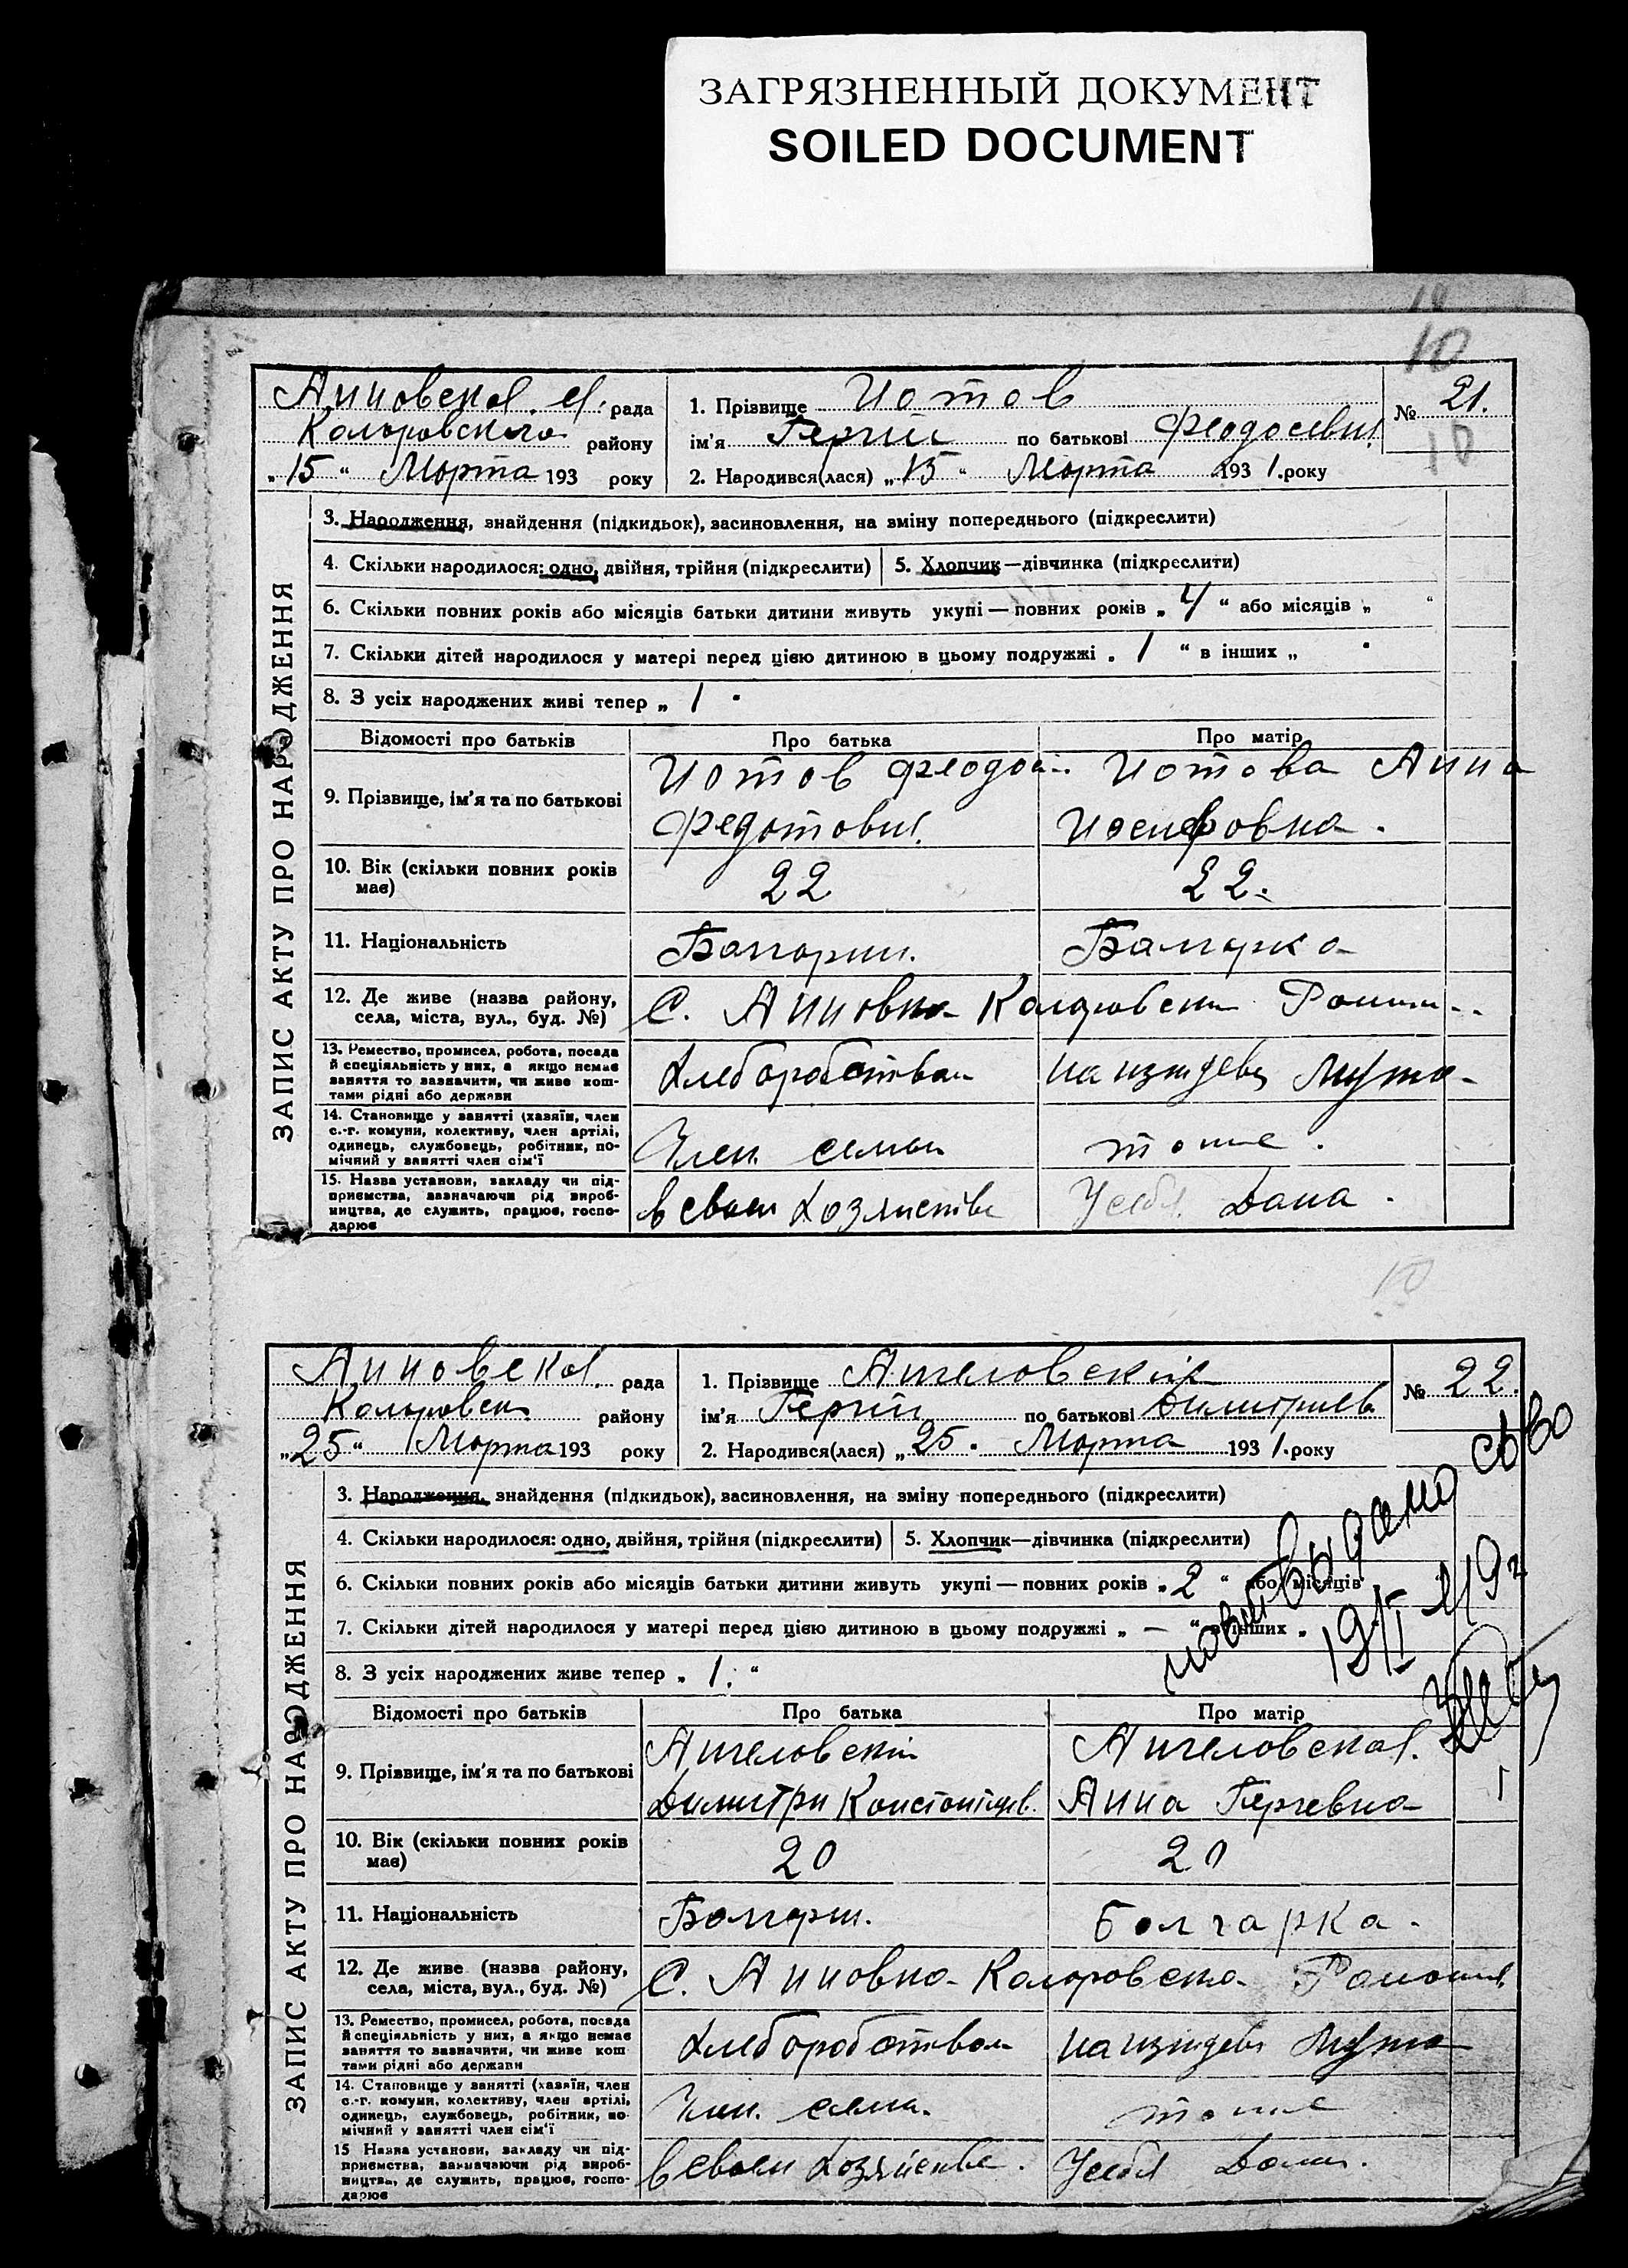 ЗАГРЯЗНЕННЫЙ ДОКУМЕНТ
SOILED DOCUMENT
10
ЗАПИС АКТУ ПРО НАРОДЖЕННЯ
Анновская рада
Коларовского району
"15" Марта 193 року
1. Прізвище Иотов
ім'я Гергий по батькові Феодосевич
2. Народився(лася) "15" Марта 1931. року
№ 21.
10
3. Народження, знайдення (підкидьок), засиновлення, на зміну попереднього (підкреслити)
4. Скільки народилося: одно, двійня, трійня (підкреслити) 5. Хлопчик—дівчинка (підкреслити)
6. Скільки повних років або місяців батьки дитини живуть укупі — повних років „ 4 " або місяців „ "
7. Скільки дітей народилося у матері перед цією дитиною в цьому подружжі „ 1 " в інших „ "
8. З усіх народжених живі тепер „ 1 "
Відомості про батьків Про батька Про матір
9. Прізвище, ім'я та по батькові
Иотов Феодоси Иотова Анна
Федотович Иосифовна.
10. Вік (скільки повних років має) 22 22.
11. Національність Болгарин. Болгарка
12. Де живе (назва району, села, міста, вул., буд. №) С. Анновка Коларовски
13. Ремество, промисел, робота, посада
й спеціяльність у них, а якщо немає
заняття то зазначити, чи живе кош-
тами рідні або держави
Хлеборобством на иждев. мужа
14. Становище у занятті (хазяїн, член
с.-г. комуни, колективу, член артілі,
одинець, службовець, робітник, по-
мічний у занятті член сім'ї
Член семьи тоже.
15. Назва установи, закладу чи під-
приємства, зазначаючи рід вироб-
ництва, де служить, працює, госпо-
дарює
в своем хозяистве У себя дома.
10
ЗАПИС АКТУ ПРО НАРОДЖЕННЯ
Анновская рада
Коларовск району
"25" Марта 193 року
1. Прізвище Ангеловский
ім'я Гергий по батькові Димитриев
2. Народився(лася) "25" Марта 1931. року
№ 22.
3. Народження, знайдення (підкидьок), засиновлення, на зміну попереднього (підкреслити)
4. Скільки народилося: одно, двійня, трійня (підкреслити) 5. Хлопчик—дівчинка (підкреслити)
6. Скільки повних років або місяців батьки дитини живуть укупі — повних років „ 2 " або місяців
7. Скільки дітей народилося у матері перед цією дитиною в цьому подружжі „ — " в інших „
8. З усіх народжених живе тепер „ 1. "
выдано св-во
Відомості про батьків Про батька Про матір
9. Прізвище, ім'я та по батькові
Ангеловский Ангеловская.
Димитри Константинов. Анна Гергевна
10. Вік (скільки повних років має) 20 20
11. Національність Болгарин. Болгарка.
12. Де живе (назва району, села, міста, вул., буд. №) С. Анновка Коларовско
13. Ремество, промисел, робота, посада
й спеціяльність у них, а якщо немає
заняття то зазначити, чи живе кош-
тами рідні або держави
Хлеборобством на иждев. мужа
14. Становище у занятті (хазяїн, член
с.-г. комуни, колективу, член артілі,
одинець, службовець, робітник, по-
мічний у занятті член сім'ї
Член. семи. тоже
15 Назва установи, закладу чи під-
приємства, зазначаючи рід вироб-
ництва, де служить, працює, госпо-
дарює
в своем хозяистве. У себя дома.